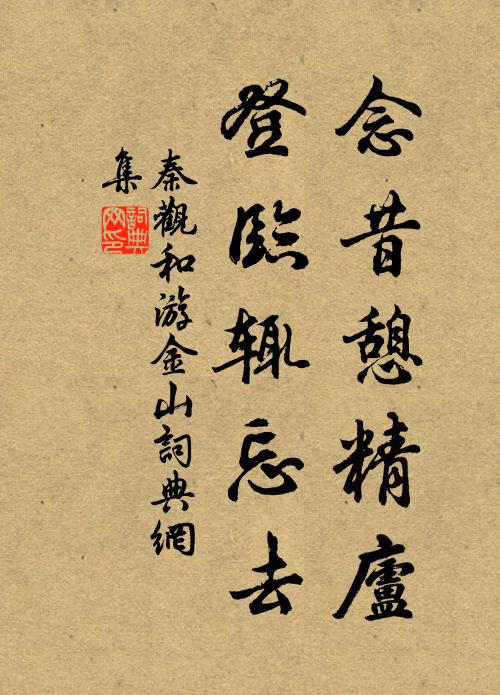 念昔憩精廬
登臨輒忘去
秦觀和游金山詞典網
集
詞典網印